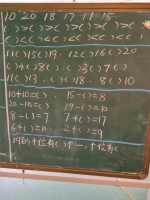 10 20 18 17 11 15
( )>( )>( )>( )>( )>( )
( )<( )<( )<( )<( )<( )
11( )15( )19, 12( )16( )20
( )4( )8( ), ( )3( )7( )
11( )3, ( )( )18, 8( )10
10+10=( ) 15-( )=8
20-10=( ) 19-( )=10
8-( )=7 7+( )=17
6+( )=10 2+( )=9
19的十位有( )个一, 个位有(